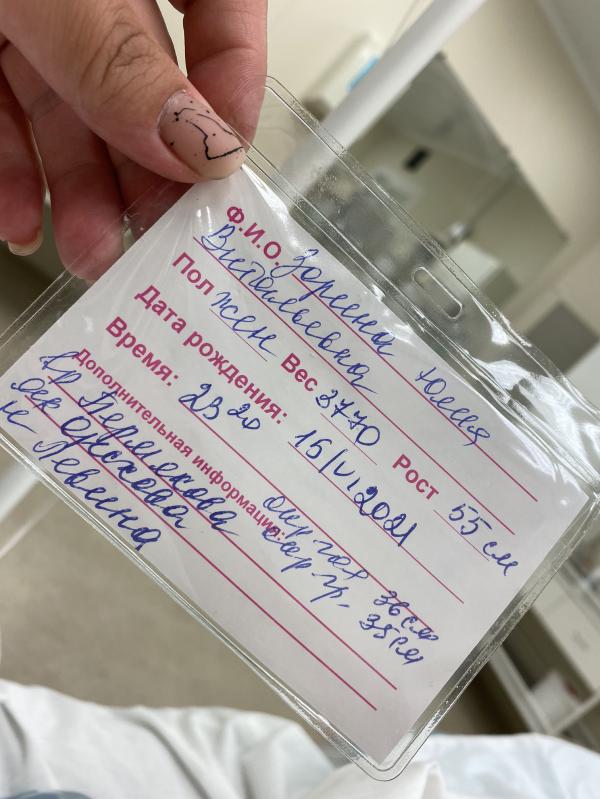 Ф.И.О. Зорина Юлия
Витальевна
Пол жен Вес 3770 Рост 55 см
Дата рождения: 15/VI 2021
Время: 23 20
Дополнительная информация: окр гол 36 см
вр Пермякова окр гр. 35 см
Орехова
Левина